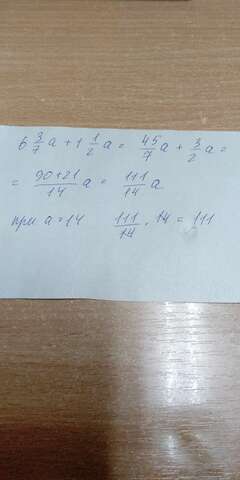 6 3/7 a + 1 1/2 a = 45/7 a + 3/2 a =
= 90+21/14 a = 111/14 a
при a = 14 111/14 · 14 = 111